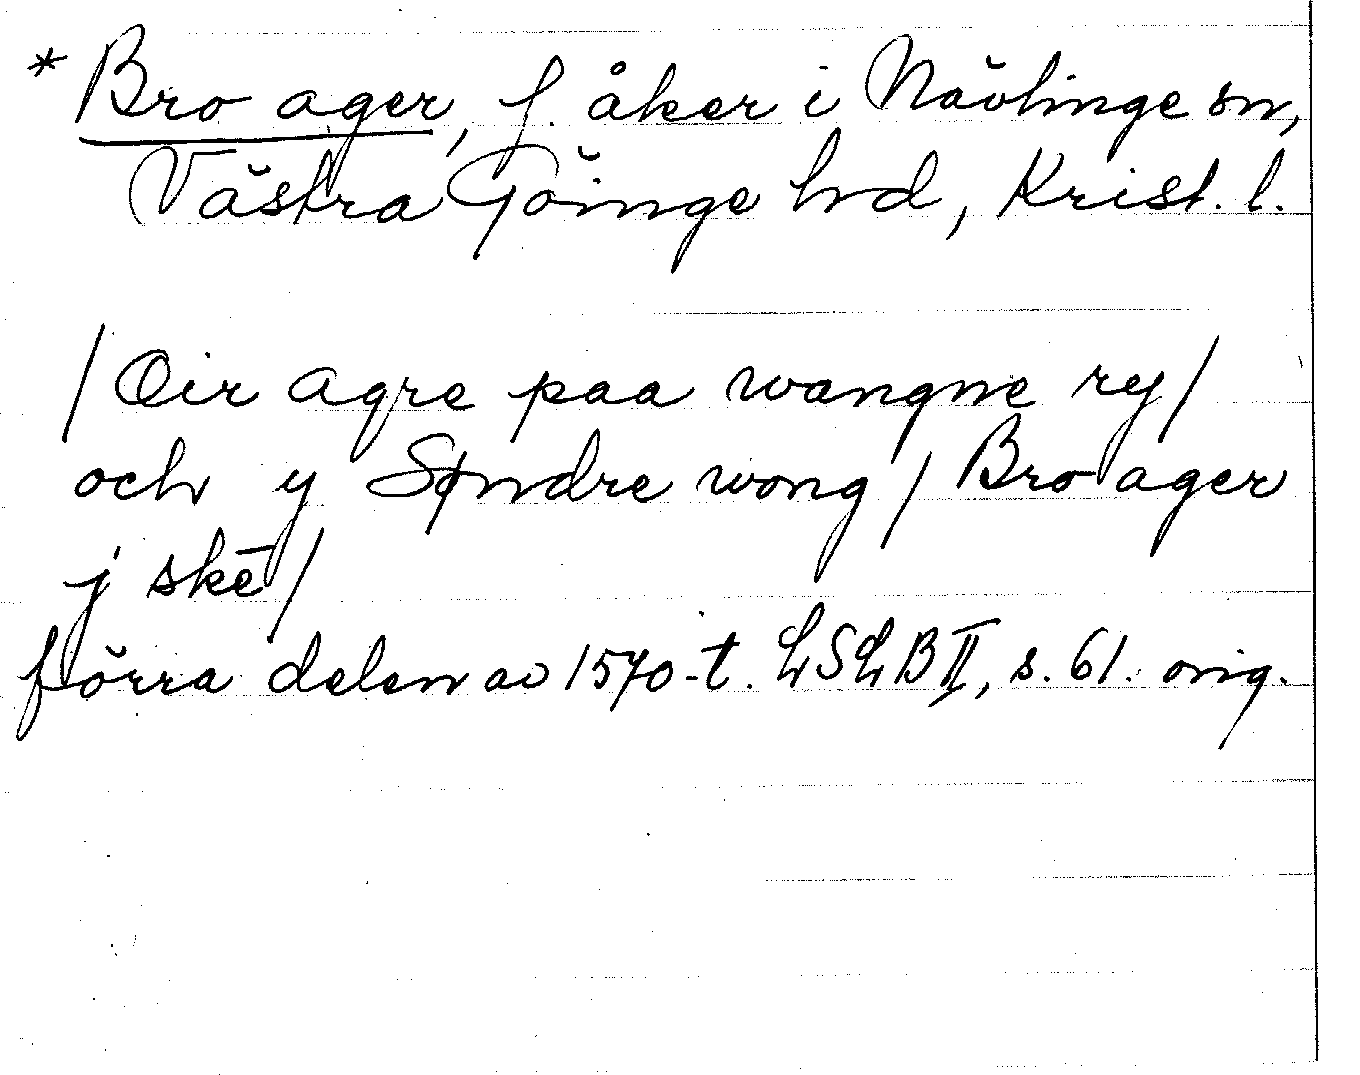 * Bro ager, f. åker i Nävlinge sn,
Västra Göinge hd, Krist. l.
/ Oir agre paa wangne ry /
och y Søndre wong / Bro ager
j skē /
förra delen av 1570-t. LSLB II, s. 61. orig.